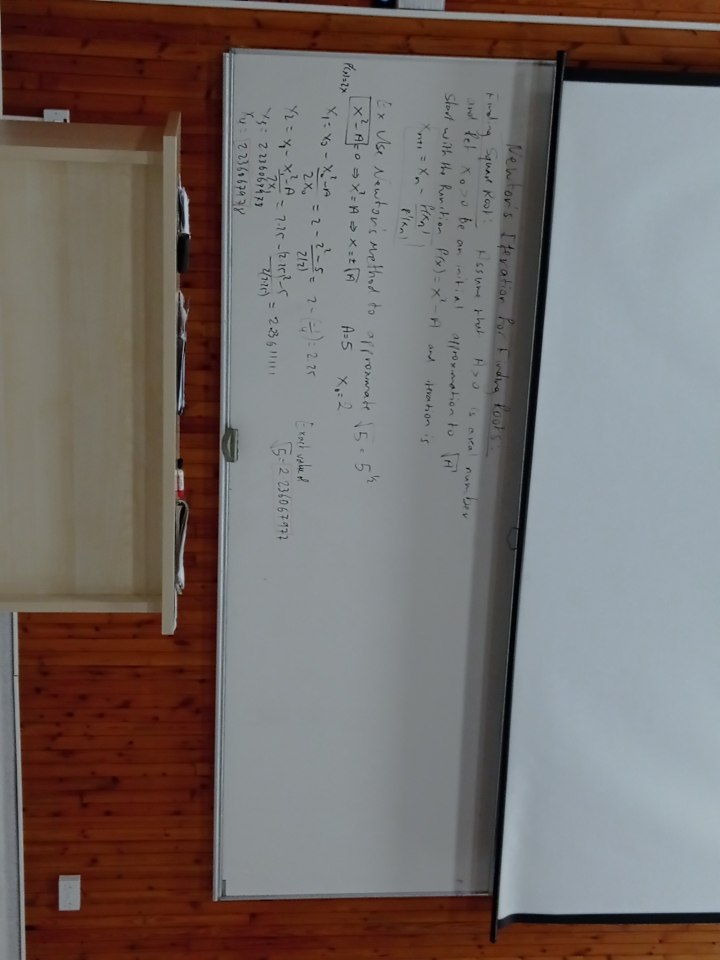 Newton's Iteration for Finding Roots:
Finding Square Root: Assume that A>0 is a real number
and let x₀>0 be an initial approximation to √A
Start with the function f(x) = x² - A and iteration is
xₙ₊₁ = xₙ - f(xₙ)/f'(xₙ)
Ex Use Newton's Method to approximate √5 = 5^1/2
x² - A = 0 ⇒ x² = A ⇒ x = ±√A A=5 x₀=2
f'(x)=2x
x₁ = x₀ - (x₀² - A)/2x₀ = 2 - (2² - 5)/2(2) = 2 - (-1/4) = 2.25
x₂ = x₁ - (x₁² - A)/2x₁ = 2.25 - ((2.25)² - 5)/2(2.25) = 2.23611111
x₃ = 2.236067978
x₄ = 2.236067978
Exact value of
√5 = 2.236067977